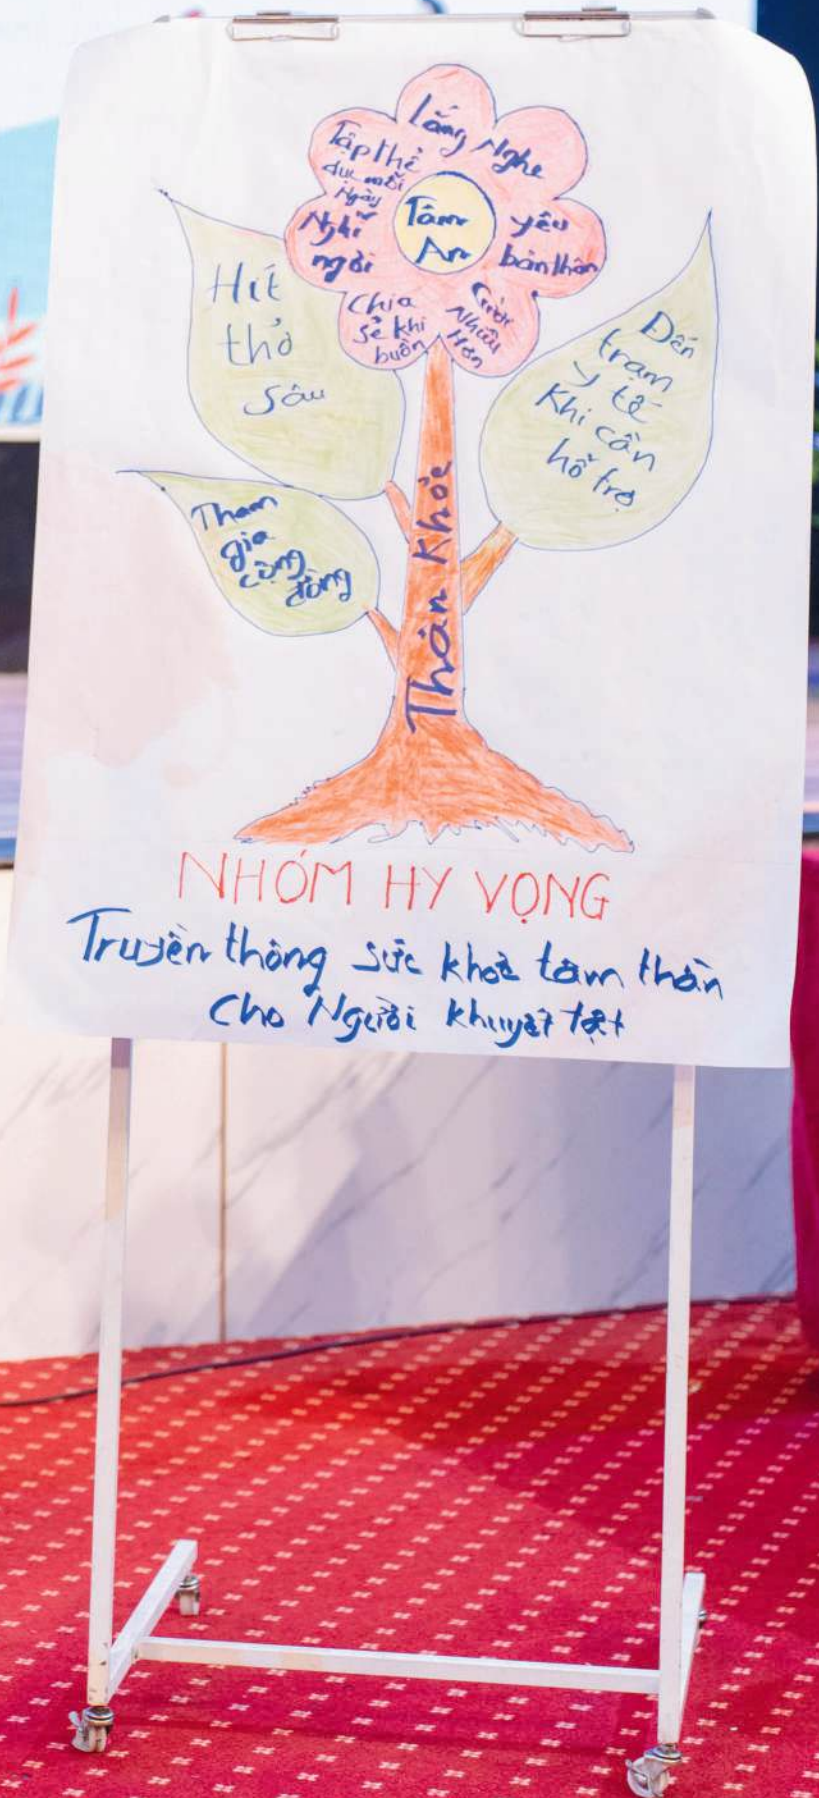 Lắng Nghe
Tập thể
dục mỗi
Ngày
Nghỉ
ngơi
Tâm
An
yêu
bản thân
Chia
sẻ khi
buồn
Cười
Nhiều
Hơn
Hít
thở
sâu
Đến
trạm
y tế
Khi cần
hỗ trợ
Tham
gia
cộng
đồng
Thân Khỏe
NHÓM HY VỌNG
Truyền thông sức khoẻ tâm thần
cho Người khuyết tật